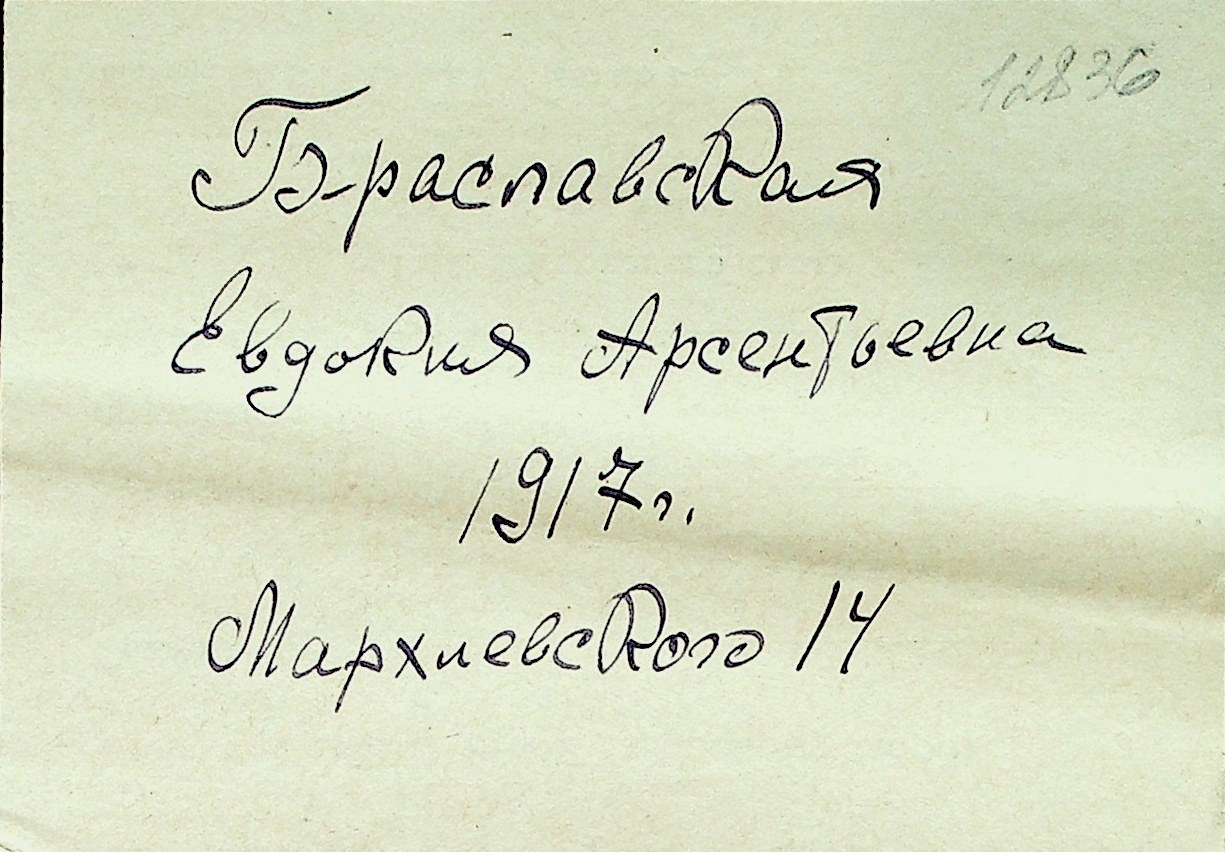 12836
Браславская
Евдокия Арсентьевна
1917г.
Мархлевского 14